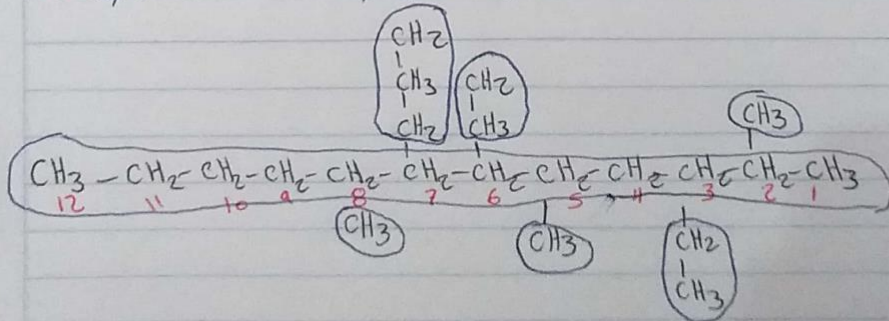 CH2
CH3 CH2
CH2 CH3 CH3
CH3 - CH2 - CH2 - CH2 - CH2 - CH2 - CH2 CH2 - CH2 CH2 CH2 - CH3
12 11 10 9 8 7 6 5 4 3 2 1
CH3 CH3 CH2
CH3